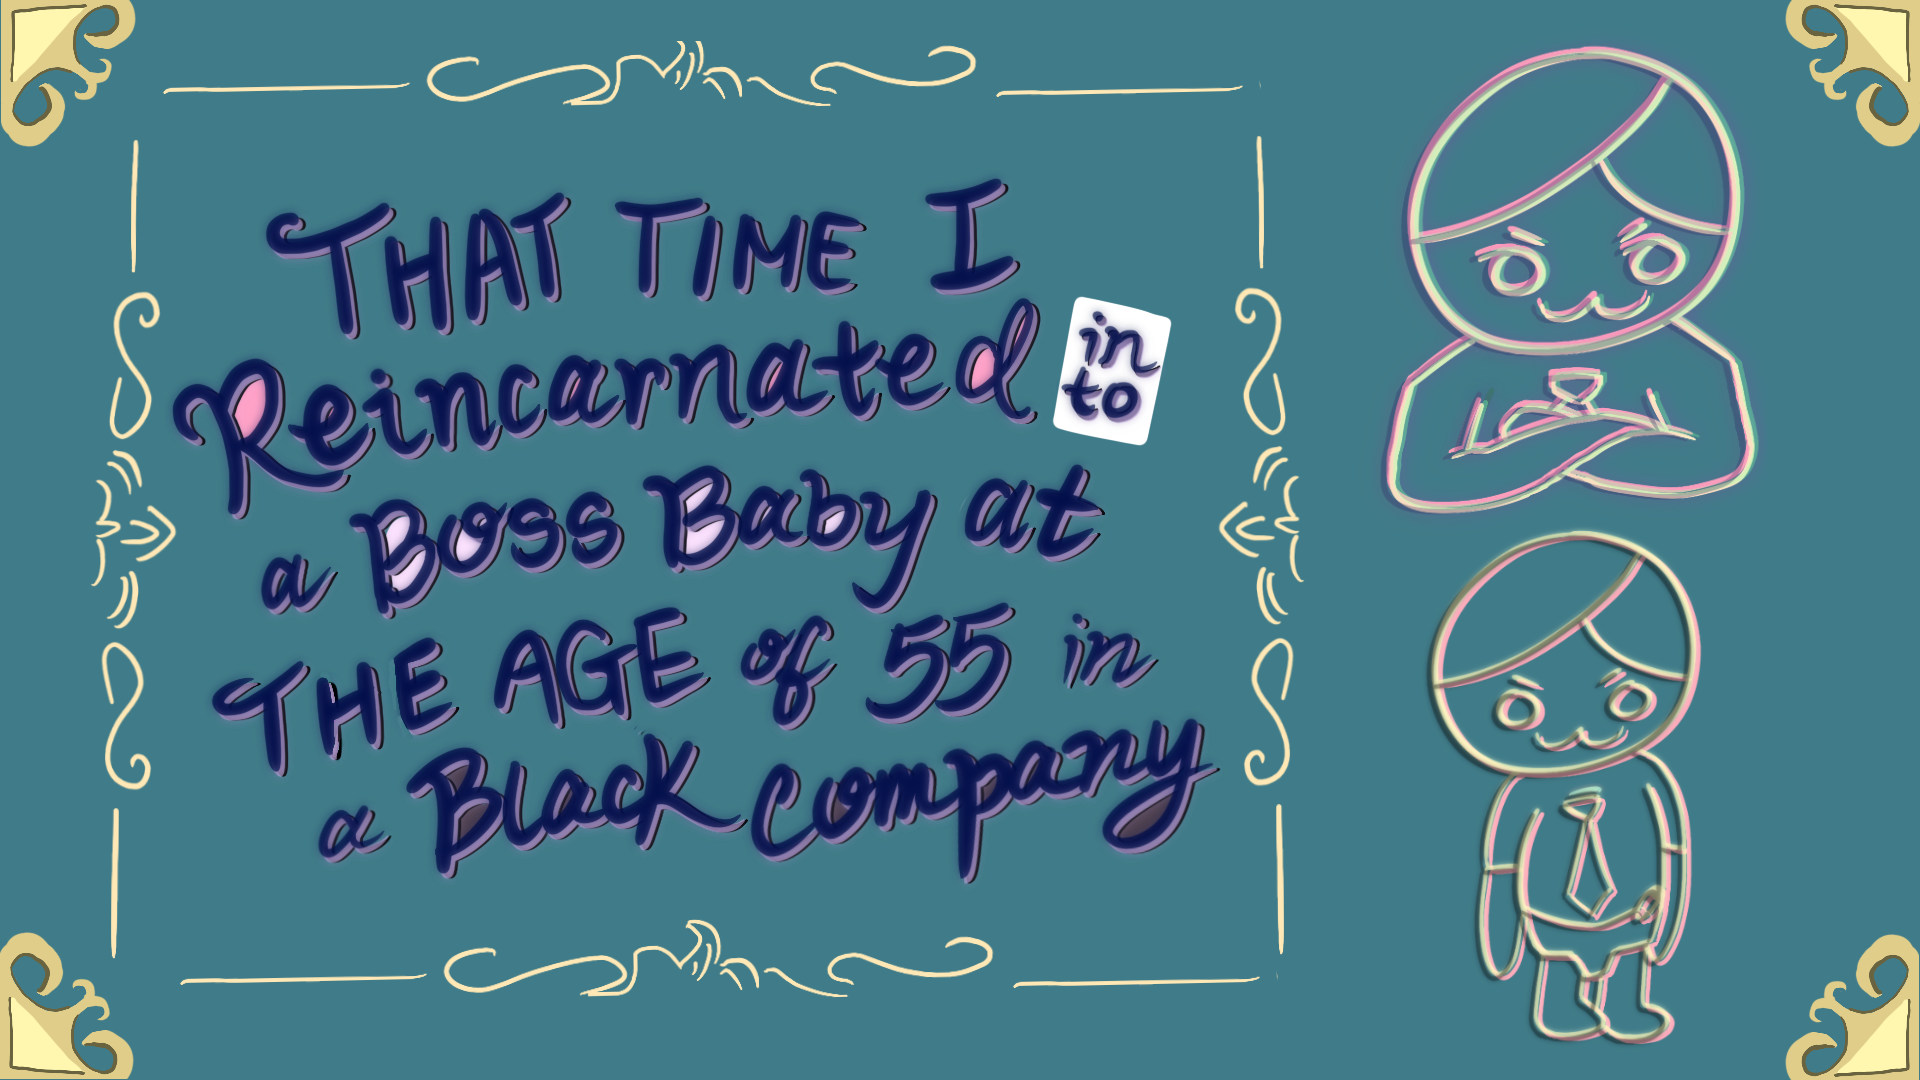 THAT TIME I
Reincarnated in to
a Boss Baby at
THE AGE of 55 in
a Black company